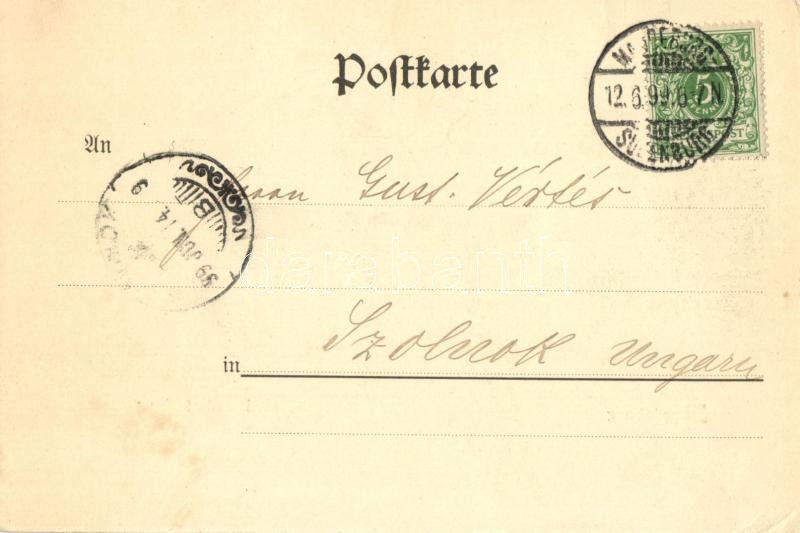 Postkarte
MAGDEBURG
12.6.99.6-7N
SUDENBURG
5
An
Herrn Gust. Vértés
B
99 JUN. 14. 9
SZOLNOK
in Szolnok Ungarn
darabanth